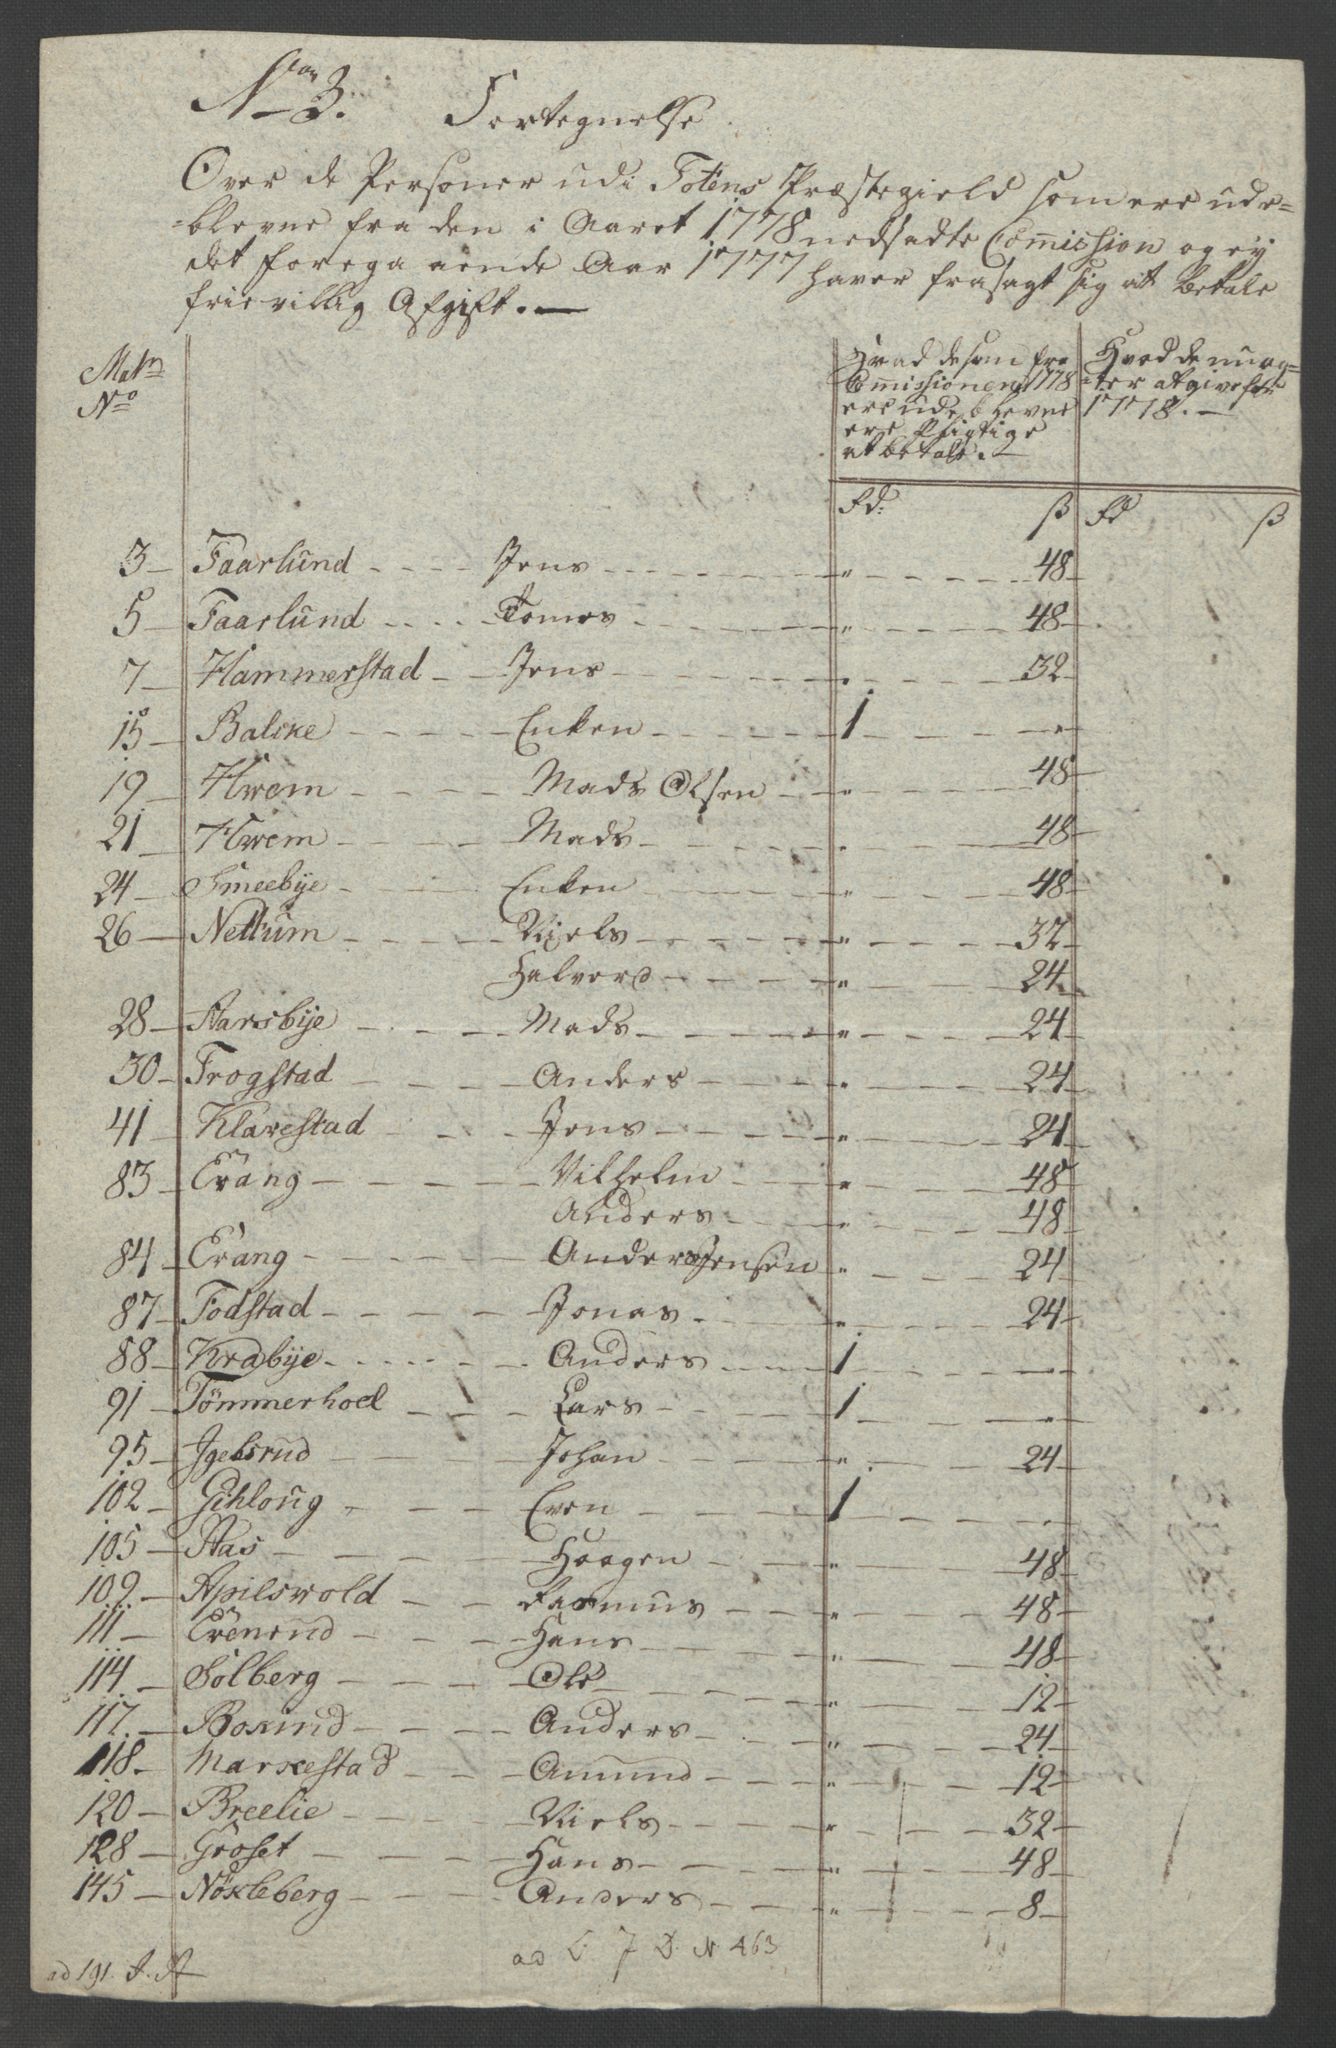 No 3. Fortegnelse
Over de Personer udi Totens Præstegield som ere ude=
=blevne fra den i Aaret 1778 nedsadte Comission og ey
det forega aaende Aar 1777 haver frasagt sig at betale
frievillig Afgift. —
Matr No
Hvad de som fra Comissionen 1778 ere udeblevne ere Pligtige at betale.
Hvad de nu ag= ter at give for 1778. —
rd: ß rd ß
3 — Faarlund Jens " 48
5 — Faarlund Tomes " 48
7 — Hammerstad Jens " 32
15 — Balcke Enken 1 "
19 — Hwem Mads Olsen " 48
21 — Hwem Mads " 48
24 — Smeebye Enken " 48
26 — Nettum Niels " 32
Halvord " 24
28 — Aarsbye Mads " 24
30 — Frogstad Anders " 24
41 — Klarestad Jens " 24
83 — Erang Vilhelm " 48
Anders " 48
84 — Erang Anders Jensen " 24
87 — Fodstad Jonas " 24
88 — Krabye Anders 1 "
91 — Tömmerhoel Lars 1 "
95 — Igelsrud Johan " 24
102 — Gihloug Even 1 "
105 — Aas Haagen " 48
109 — Apilswold Rasmus " 48
111 — Evenrud Hans " 48
114 — Solberg Ole " 12
117 — Boxrud Anders " 24
118 — Markestad Amund " 12
120 — Breelie Niels " 32
128 — Groset Hans " 48
145 — Nökleberg Anders " 8
ad 191. A. A
ad L: 7 D. N 463